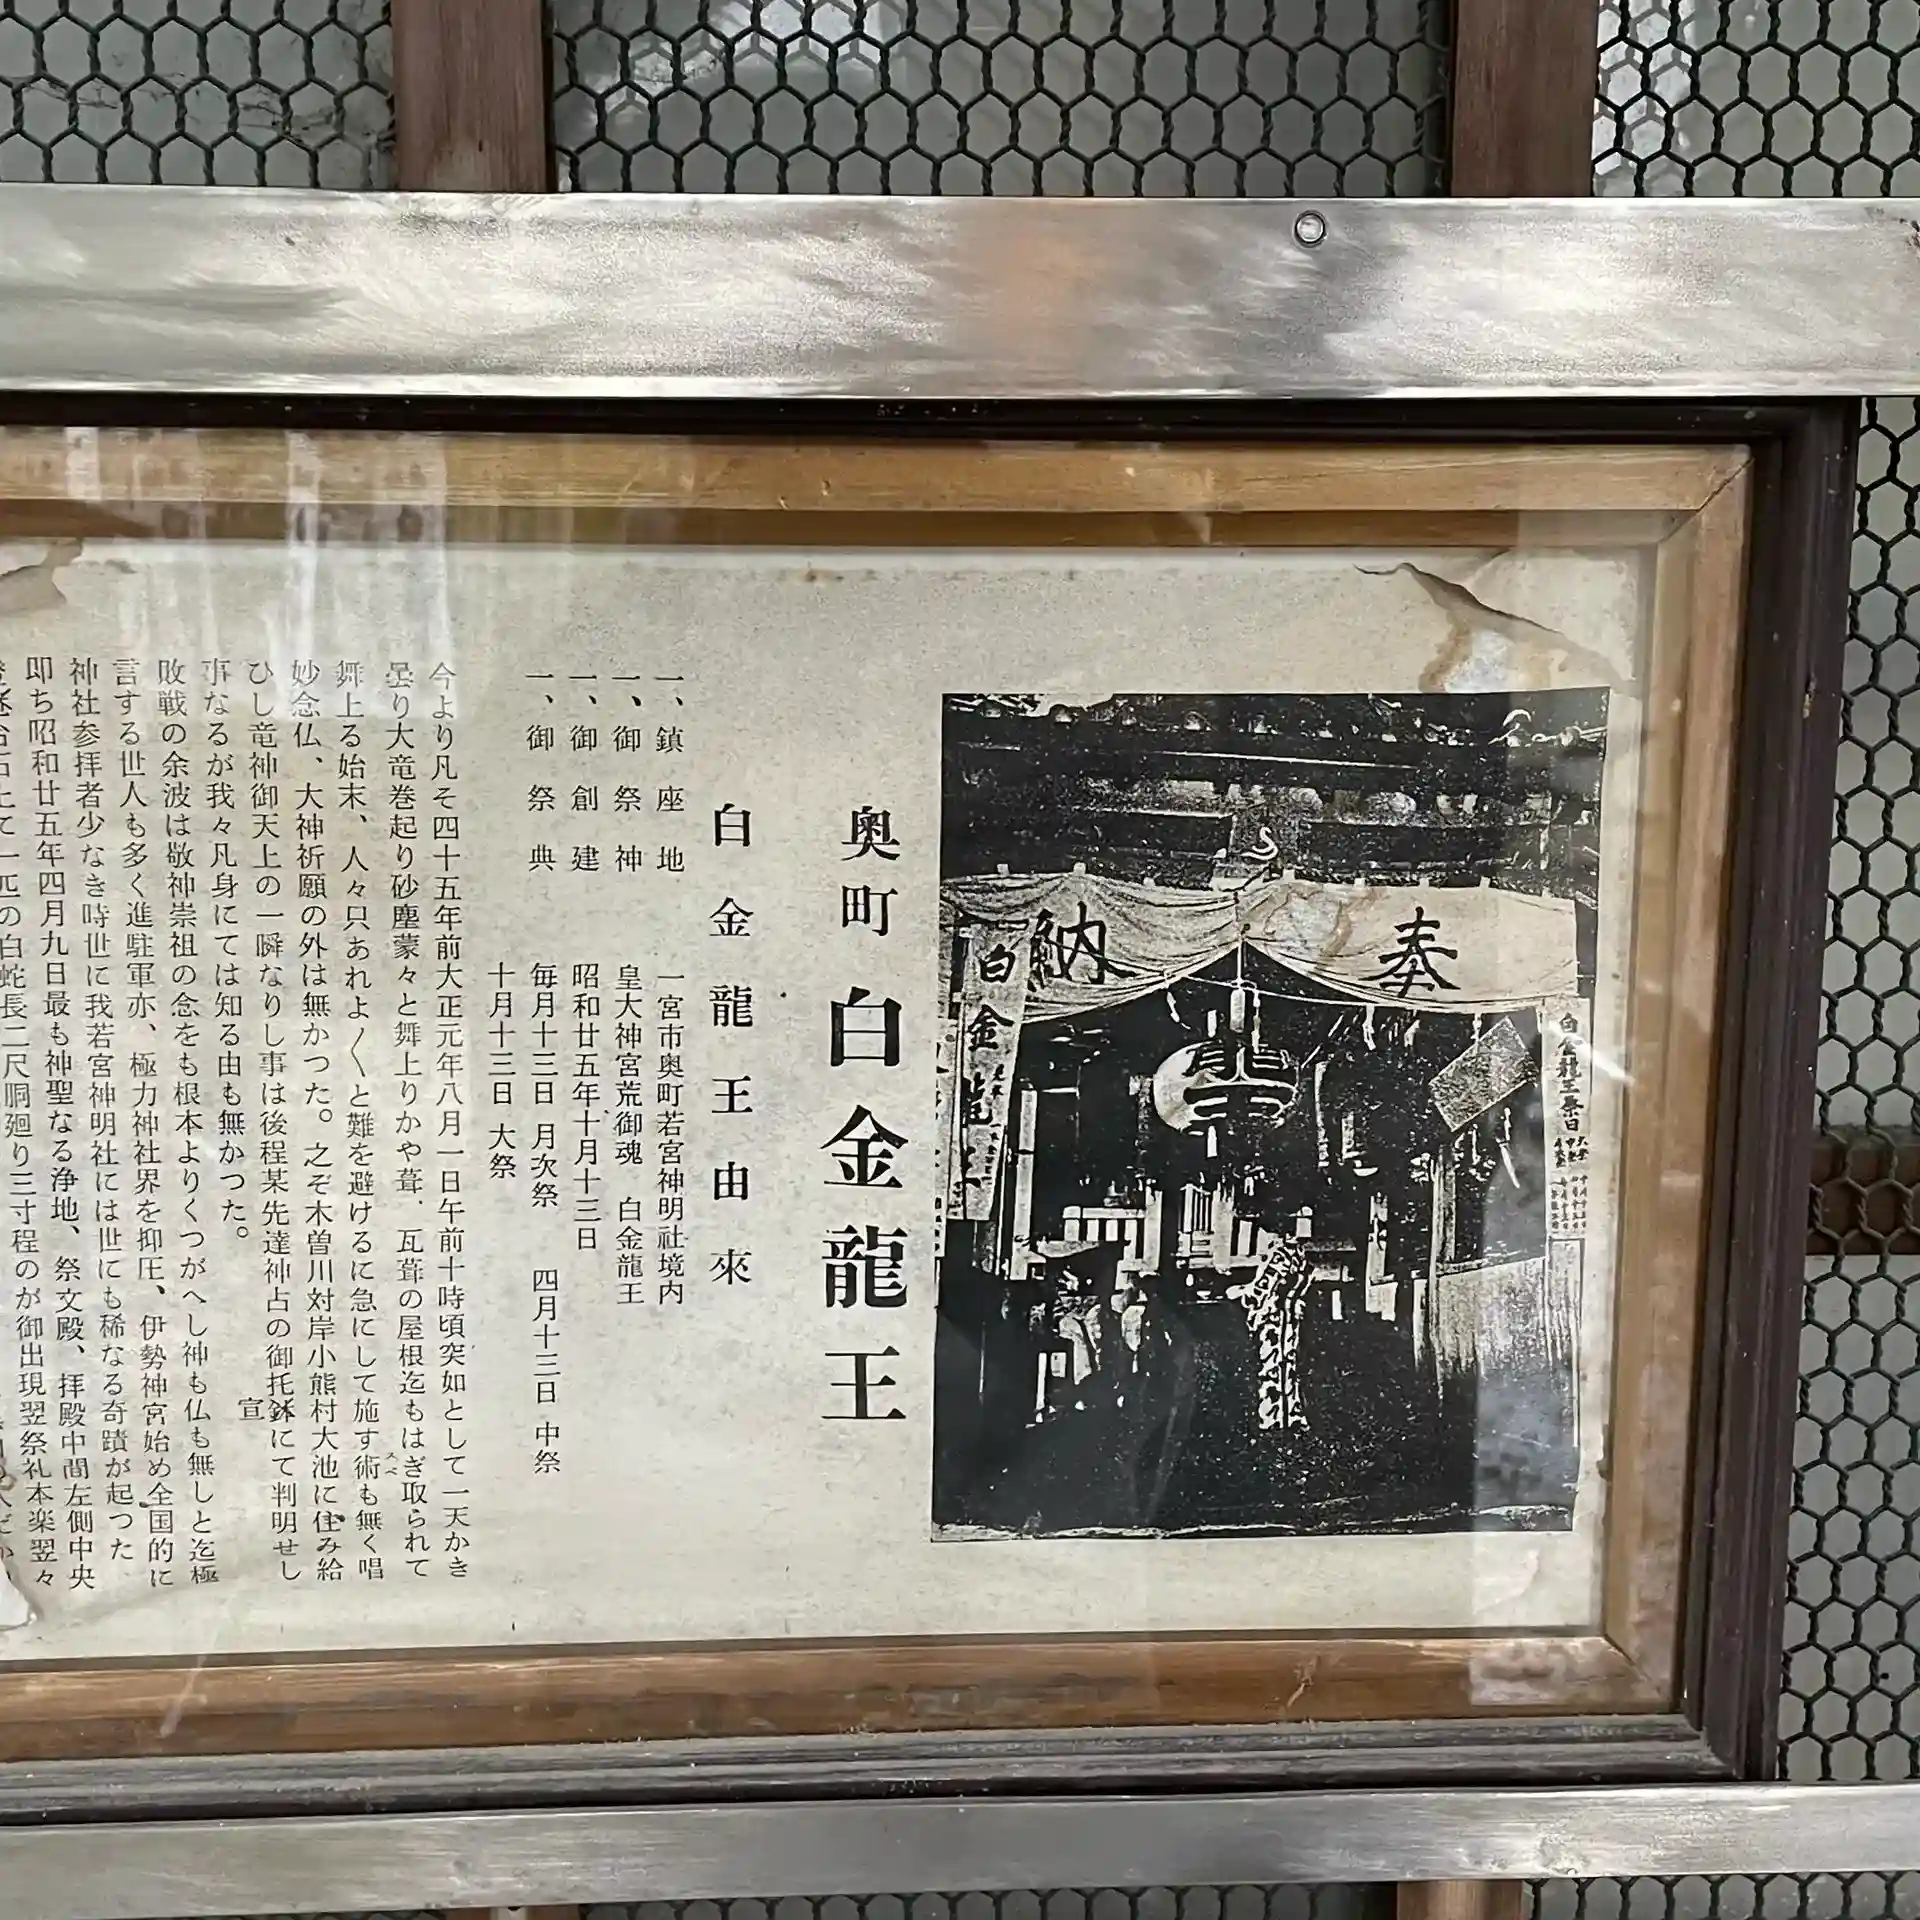 奉納
白金龍王祭日
白金龍王
奥町 白金龍王
白金龍王由來
一、鎮座地 一宮市奥町若宮神明社境内
一、御祭神 皇大神宮荒御魂 白金龍王
一、御創建 昭和廿五年十月十三日
一、御祭典 毎月十三日 月次祭 四月十三日 中祭
十月十三日 大祭
今より凡そ四十五年前大正元年八月一日午前十時頃突如として一天かき
曇り大竜巻起り砂塵蒙々と舞上りかや葺、瓦葺の屋根迄もはぎ取られて
舞上る始末、人々只あれよ〱と難を避けるに急にして施す術も無く唱
スベ
妙念仏、大神祈願の外は無かつた。之ぞ木曽川対岸小熊村大池に住み給
ひし竜神御天上の一瞬なりし事は後程某先達神占の御托にて判明せし
宣
事なるが我々凡身にては知る由も無かつた。
敗戦の余波は敬神崇祖の念をも根本よりくつがへし神も仏も無しと迄極
言する世人も多く進駐軍亦、極力神社界を抑圧、伊勢神宮始め全国的に
神社参拝者少なき時世に我若宮神明社には世にも稀なる奇蹟が起つた
即ち昭和廿五年四月九日最も神聖なる浄地、祭文殿、拝殿中間左側中央
一匹の白蛇長二尺胴廻り三寸程のが御出現翌祭礼本楽翌々